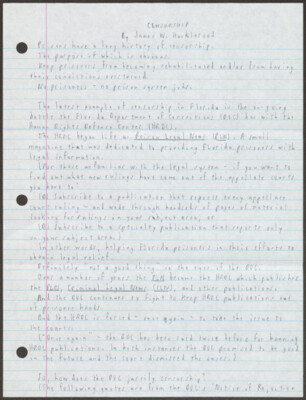 CENSORSHIP
By James W. Hucklerood
Prisons have a long history of censorship.
The purpose of which is obvious.
Keep prisoners from becoming rehabilitated and/or from having
their convictions overturned.
No prisoners - no prison system jobs.
The latest example of censorship in Florida is the on-going
battle the Florida Department of Corrections (DOC) has with the
Human Rights Defense Center (HRDC).
The HRDC began life as Prison Legal News (PLN). A small
magazine that was dedicated to providing Florida prisoners with
legal information.
(For those unfamiliar with the legal system - if you want to
find out what new rulings have come out of the appellate courts
you have to:
(A) Subscribe to a publication that reports every appellate
court ruling - and wade through hundreds of pages of material
looking for rulings in your subject area; or
(B) Subscribe to a specialty publication that reports only
on your subject area.)
In other words, helping Florida prisoners in their efforts to
obtain legal relief.
Definitely not a good thing in the eyes of the DOC.
Over a number of years the PLN became the HRDC which publishes
the PLN, Criminal Legal News (CLN), and other publications.
And the DOC continues to fight to keep HRDC publications out
of prisoners hands.
And the HRDC is forced - once again - to take the issue to
the courts.
("Once again" - the DOC has been sued twice before for banning
HRDC publications. In both instances the DOC promised to be good
in the future and the court dismissed the cases.)
So, how does the DOC justify censorship?
(The following quotes are from the DOC's "Notice of Rejection